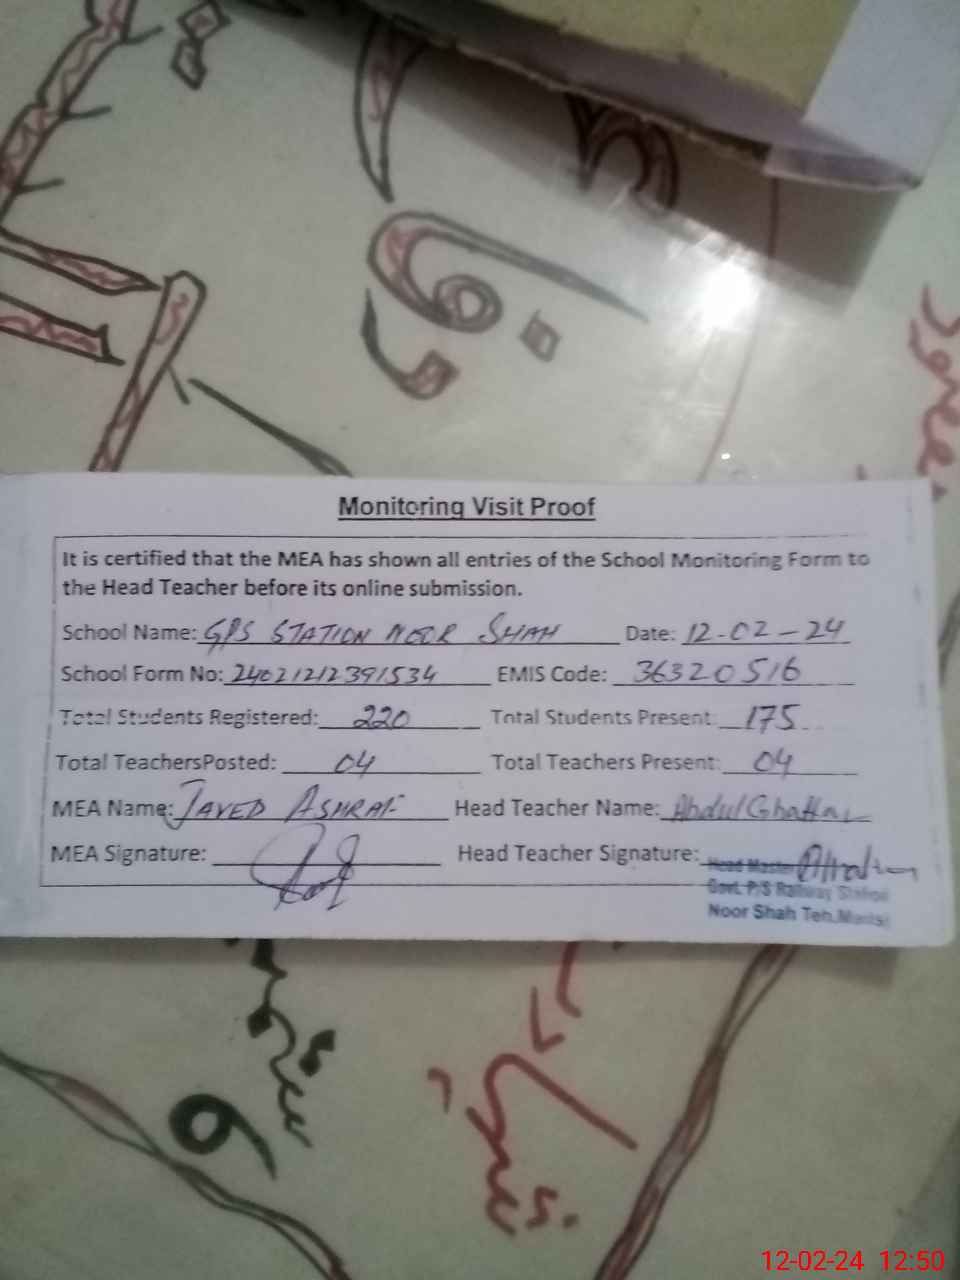 Monitoring Visit Proof
It is certified that the MEA has shown all entries of the School Monitoring Form to
the Head Teacher before its online submission.
School Name: GPS STATION NOOR SHAH Date: 12-02-24
School Form No: 24021212391534 EMIS Code: 36320516
Total Students Registered: 220 Total Students Present: 175
Total TeachersPosted: 04 Total Teachers Present: 04
MEA Name: JAVED ASHRAF Head Teacher Name: Abdul Ghaffar
MEA Signature: Head Teacher Signature:
Head Master
Govt. P/S Railway Station
Noor Shah Teh.
12-02-24 12:50